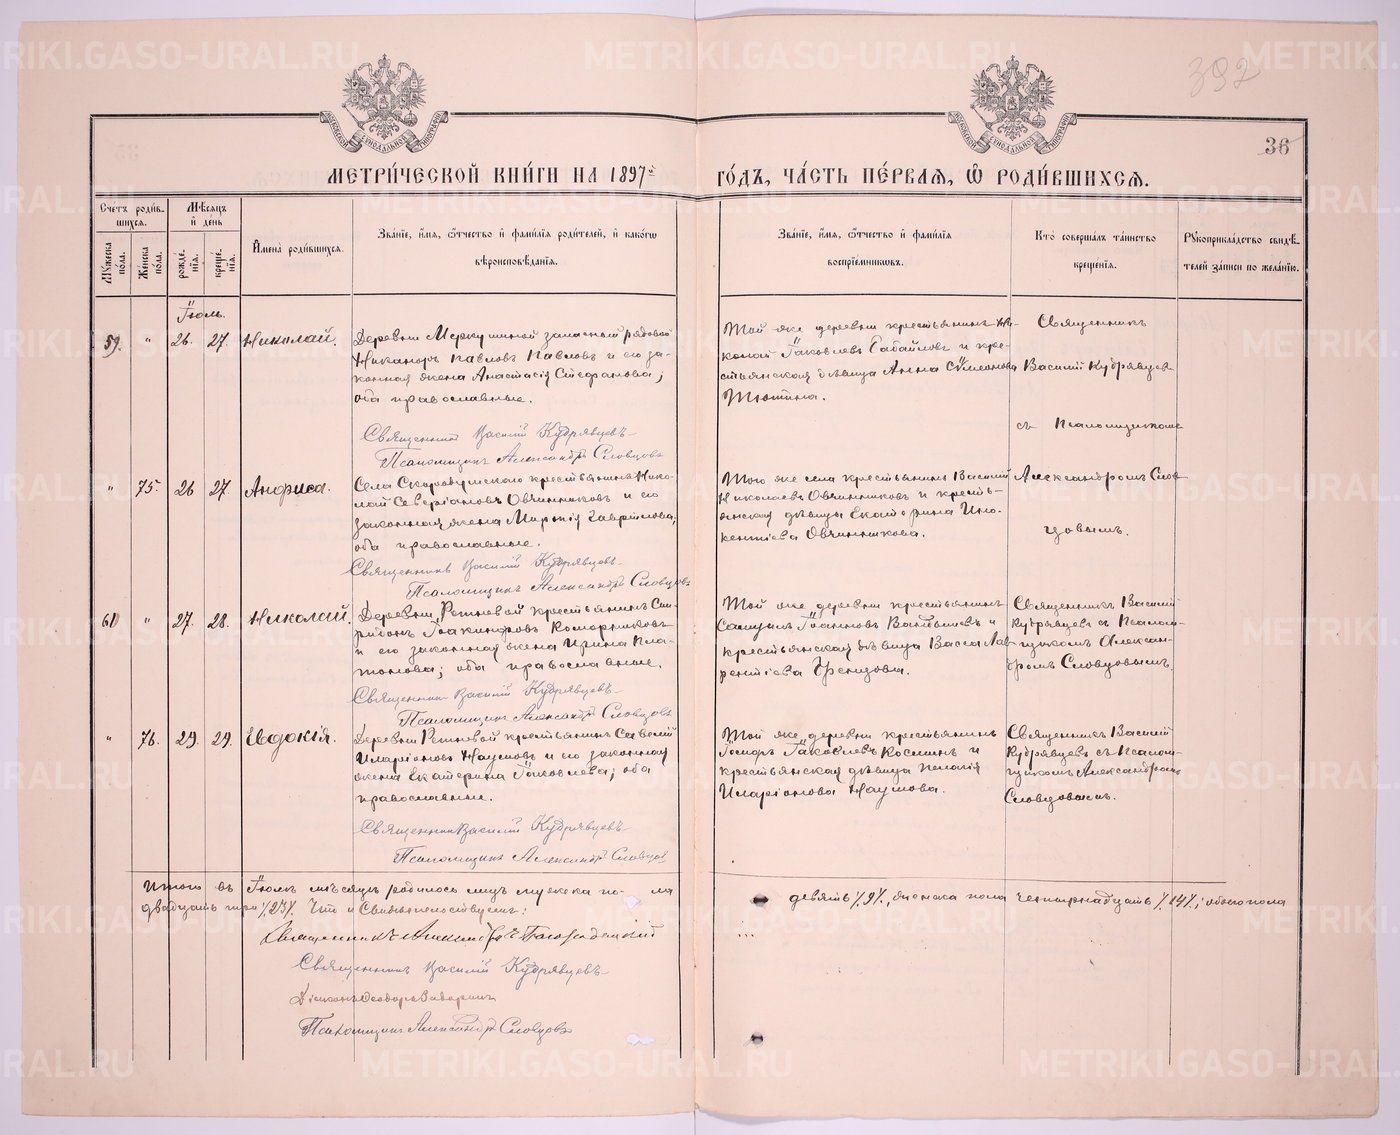 392
36
МЕТРИ́ЧЕСКОЙ КНИ́ГИ НА 1897й ГО́ДЪ, ЧА́СТЬ ПЕ́РВАЯ, Ѽ РОДИ́ВШИХСЯ.
Сче́тъ роди́в-
шихся.
Мѣ́сяцъ
и҆ де́нь
Му́жеска
по́ла.
Же́нска
по́ла.
рожде́-
нїя.
креще́-
нїя.
И҆мена̀ роди́вшихся.
Зва́нїе, и҆́мя, ѻ҆́тчество и҆ фами́лїя роди́телей, и҆ како́гѡ
вѣроисповѣ́данїя.
Зва́нїе, и҆́мя, ѻ҆́тчество и҆ фами́лїя
воспрїе́мниковъ.
Кто̀ соверша́лъ та́инство
креще́нїя.
Рꙋкоприкла́дство свидѣ́-
телей за́писи по жела́нїю.
Іюль.
59. " 26. 27. Николай.
Деревни Меркушиной запасный рядовой
Никаноръ Павловъ Павловъ и его за-
конная жена Анастасія Стефанова;
оба православные.
Священникъ Василій Кудрявцевъ
Псаломщикъ Александръ Словцовъ
Той же деревни крестьянинъ Ни-
колай Іаковлевъ и кре-
стьянская дѣвица Анна Сѵмеонова
Тютина.
Священникъ
Василій Кудрявцевъ
съ Псаломщикомъ
" 75. 26 27. Анфиса.
Села крестьянинъ Нико-
лай Северіановъ Овчинниковъ и его
законная жена Гавріилова;
оба православные.
Священникъ Василій Кудрявцевъ
Псаломщикъ Александръ Словцовъ
Того же села крестьянинъ Василій
Николаевъ Овчинниковъ и кресть-
янская дѣвица Екатерина Ино-
кентіева Овчинникова.
Александромъ Слов
цовымъ.
60 " 27. 28. Николай.
Деревни Ретневой крестьянинъ Спи-
ридонъ Іакинфовъ Комарниковъ
и его законная жена Ирина Пла-
тонова; оба православные.
Священникъ Василій Кудрявцевъ
Псаломщикъ Александръ Словцовъ
Той же деревни крестьянинъ
Самуилъ Іоанновъ и
крестьянская дѣвица Васса Лав-
рентіева
Священникъ Василій
Кудрявцевъ съ Псалом-
щикомъ Алексан-
дромъ Словцовымъ.
" 76. 29. 29. Евдокія.
Деревни Ретневой крестьянинъ Савелій
Иларіоновъ Наумовъ и его законная
жена Екатерина Іаковлева; оба
православные.
Священникъ Василій Кудрявцевъ
Псаломщикъ Александръ Словцовъ
Той же деревни крестьянинъ
Іаковлевъ Косминъ и
крестьянская дѣвица Пелагія
Иларіонова Наумова.
Священникъ Василій
Кудрявцевъ съ Псалом-
щикомъ Александромъ
Словцовымъ.
Итого въ Іюлѣ мѣсяцѣ родилось лицъ мужеска по- ла девять /9/, женска пола четырнадцать /14/; обоего пола
двадцать три /23/. Что и свидѣтельствуемъ:
Священникъ
Священникъ Василій Кудрявцевъ
Діаконъ Ѳеодоръ
Псаломщикъ Александръ Словцовъ
METRIKI.GASO-URAL.RU